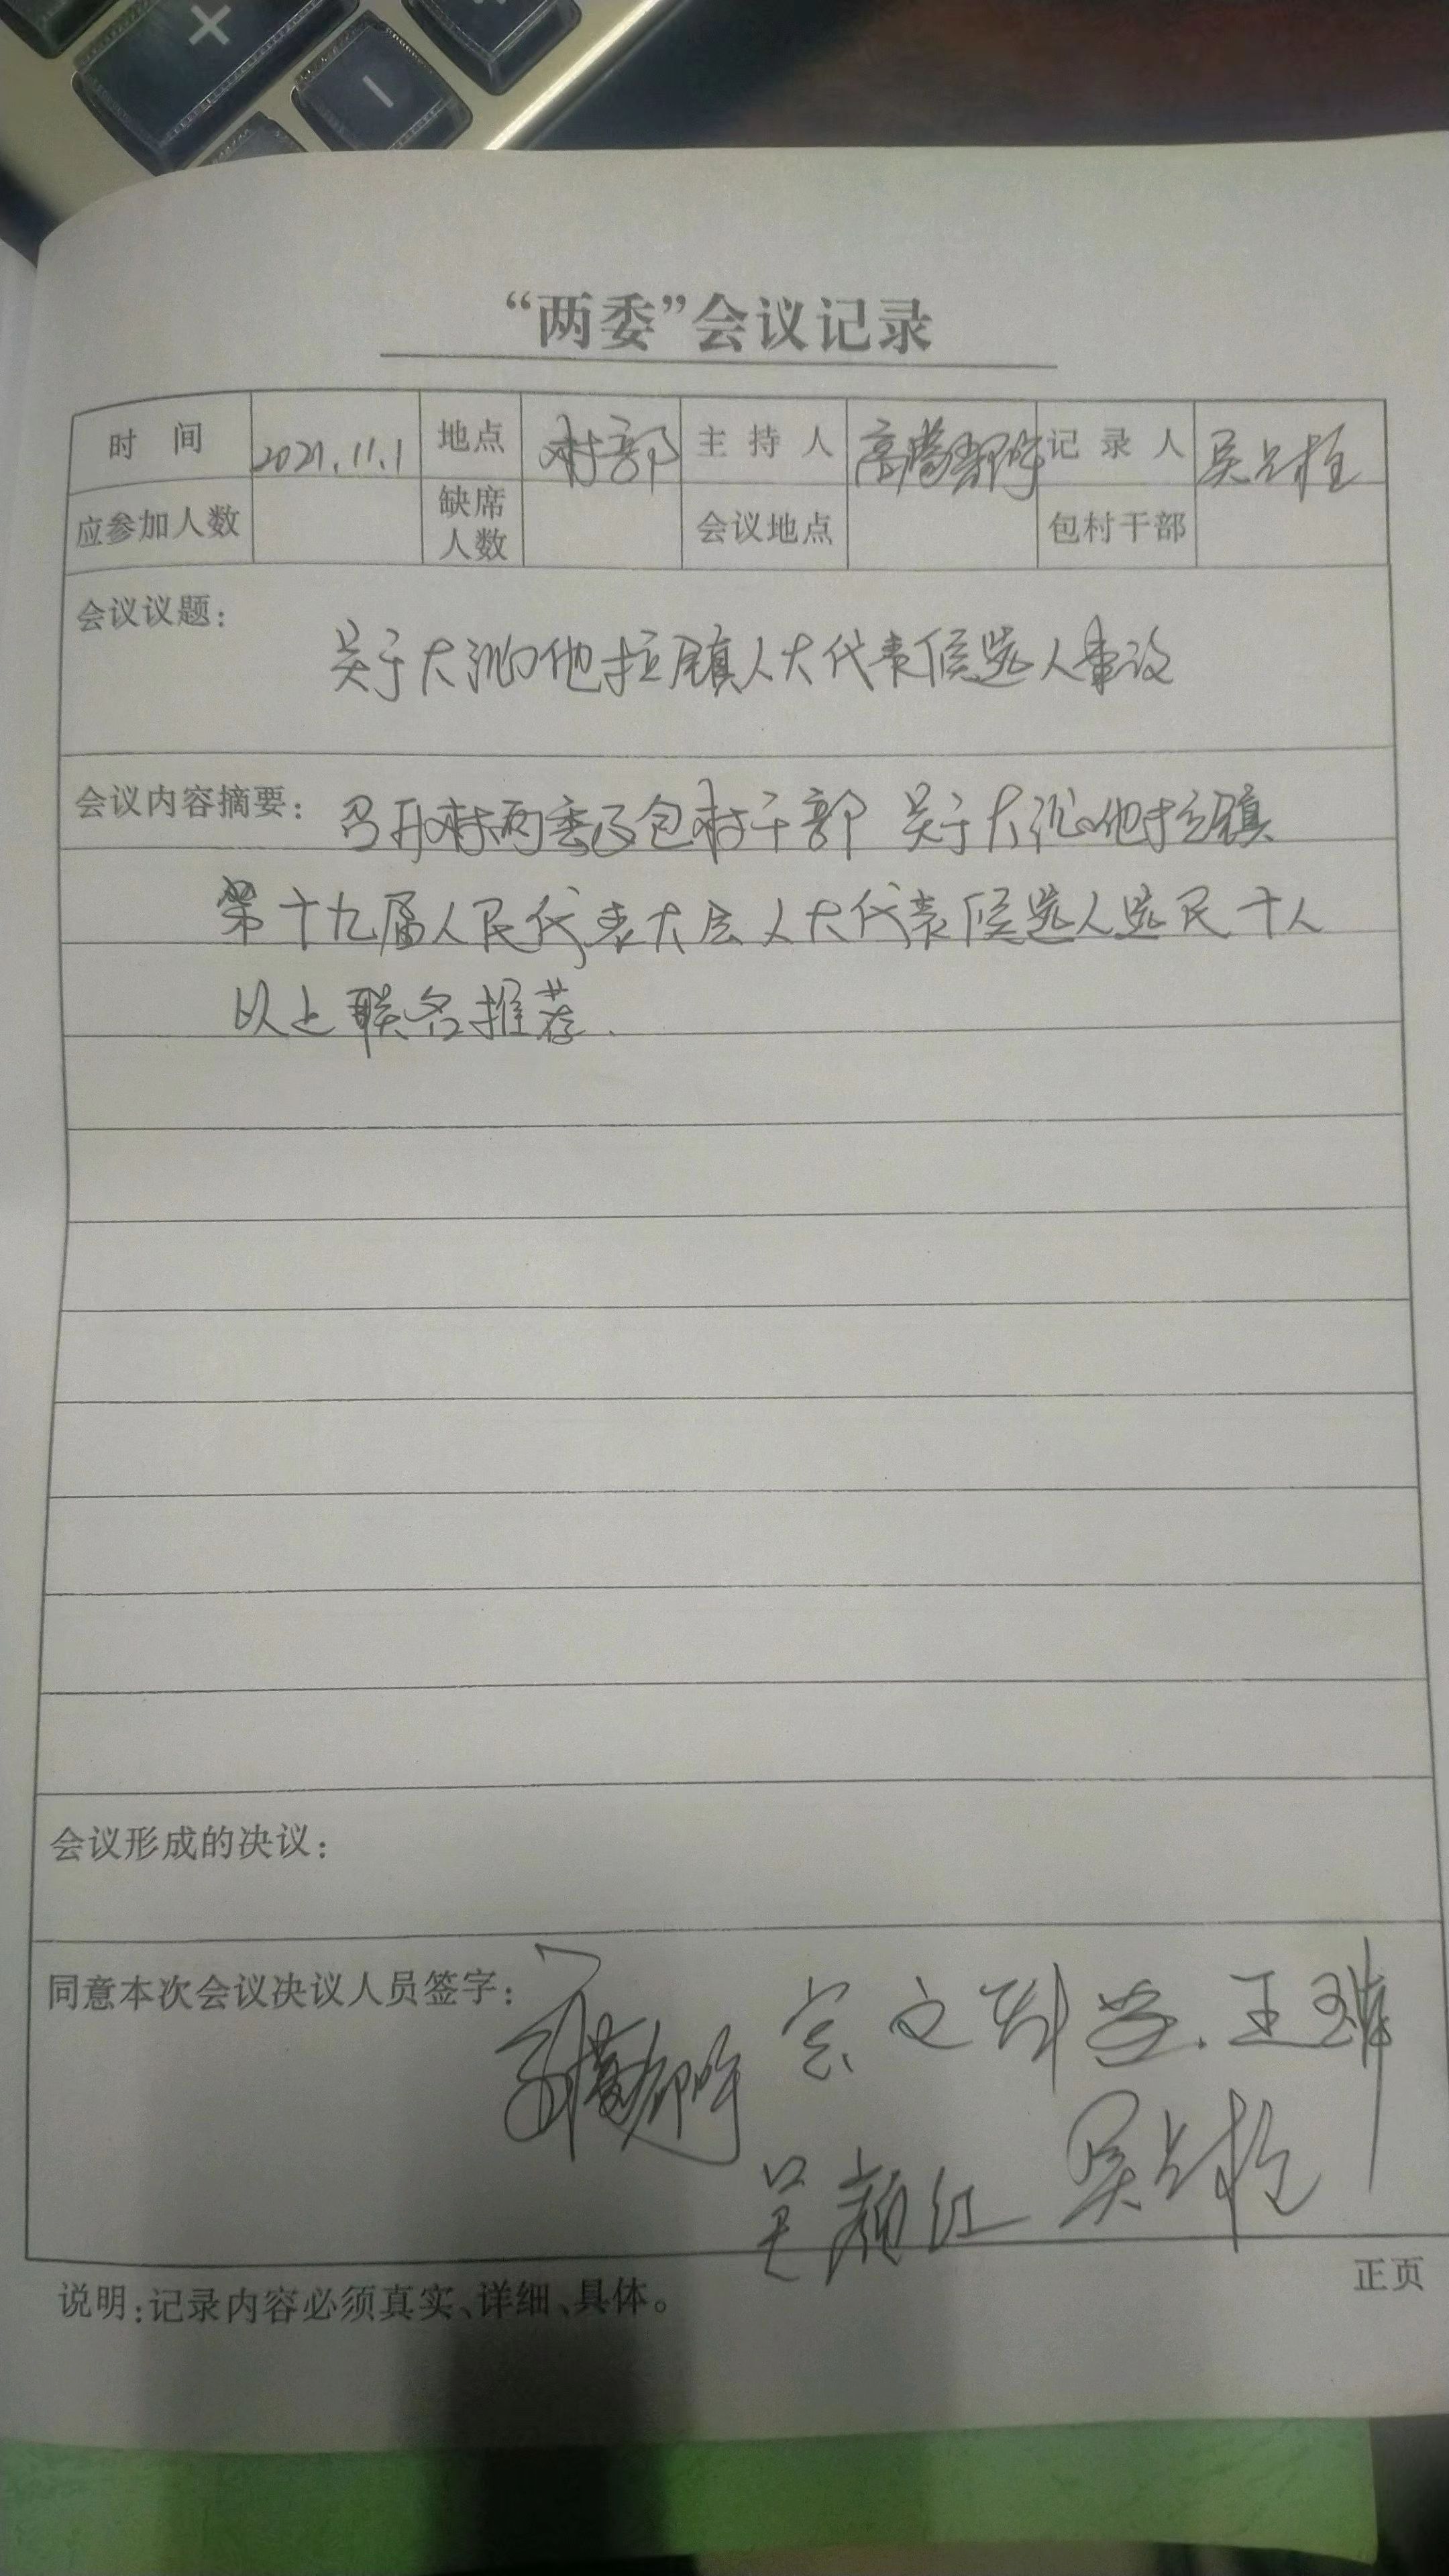 “两委”会议记录
时 间 2021.11.1 地点 村部 主持人 记录人 吴占柱
应参加人数 缺席人数 会议地点 包村干部
会议议题：
关于大沁他拉镇人大代表候选人事议
会议内容摘要： 召开村两委及包村干部 关于大沁他拉镇
第十九届人民代表大会人大代表候选人选民十人
以上联名推荐.
会议形成的决议：
同意本次会议决议人员签字：
王
吴颜红 吴占柱
说明：记录内容必须真实、详细、具体。
正页